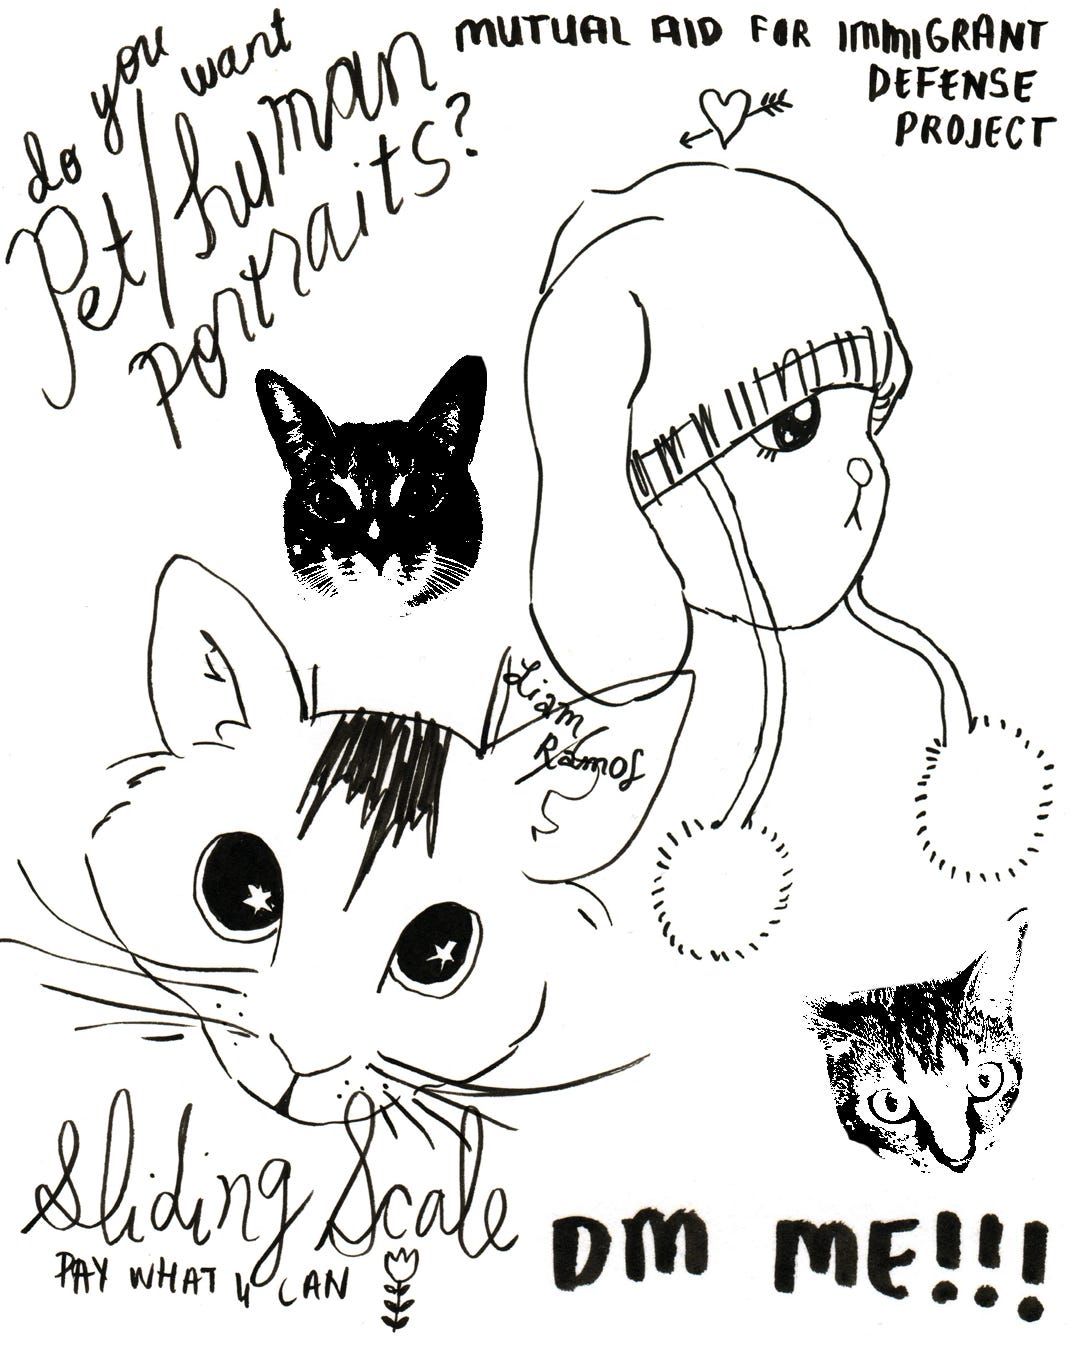 do you want
Pet/human
portraits?
MUTUAL AID FOR IMMIGRANT
DEFENSE
PROJECT
Liam
Ramos
Sliding Scale
PAY WHAT U CAN
DM ME!!!